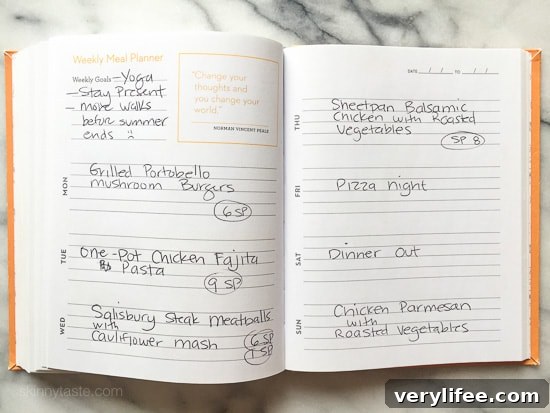 Weekly Meal Planner
Weekly Goals - Yoga
- Stay Present
- more walks
before summer
ends :(
"Change your
thoughts and
you change your
world."
NORMAN VINCENT PEALE
MON
Grilled Portobello
mushroom Burgers
6 SP
TUE
One-Pot Chicken Fajita
Pasta
9 SP
WED
Salisbury Steak Meatballs
with
Cauliflower mash
6 SP
1 SP
DATE / / TO / /
THU
Sheetpan Balsamic
Chicken with Roasted
Vegetables
SP 8
FRI
Pizza night
SAT
Dinner Out
SUN
Chicken Parmesan
with
Roasted Vegetables
skinnytaste.com
verylifee.com